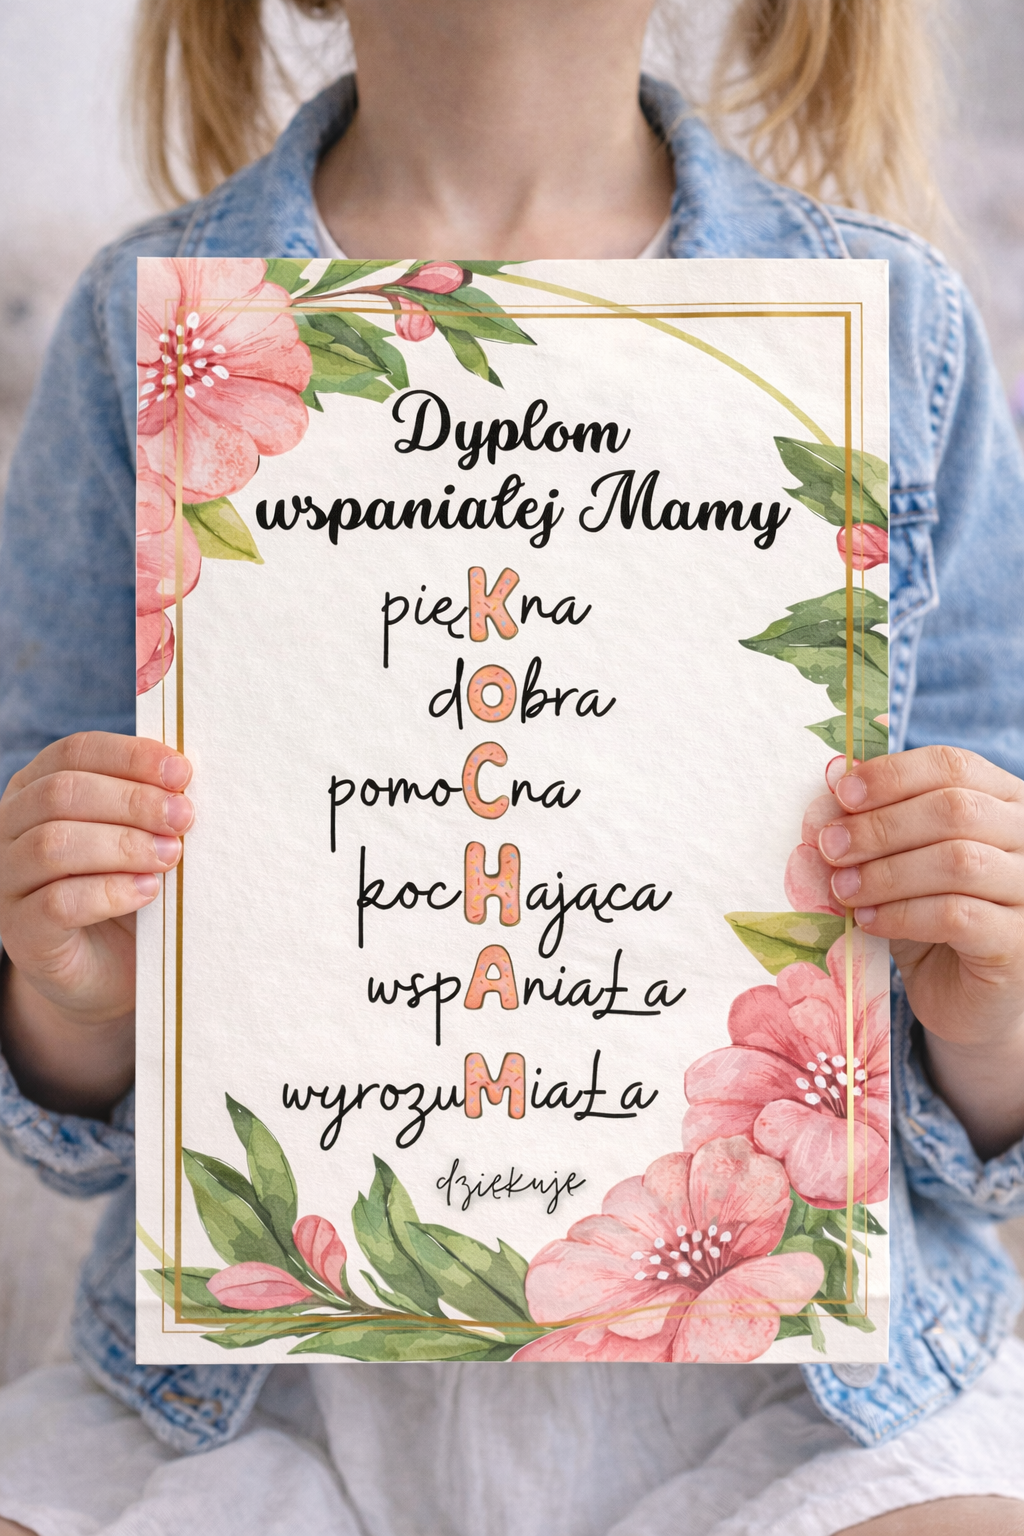 Dyplom
wspaniałej Mamy
pięKna
dObra
pomoCna
kocHająca
wspAniaŁa
wyrozuMiaŁa
dziękuję